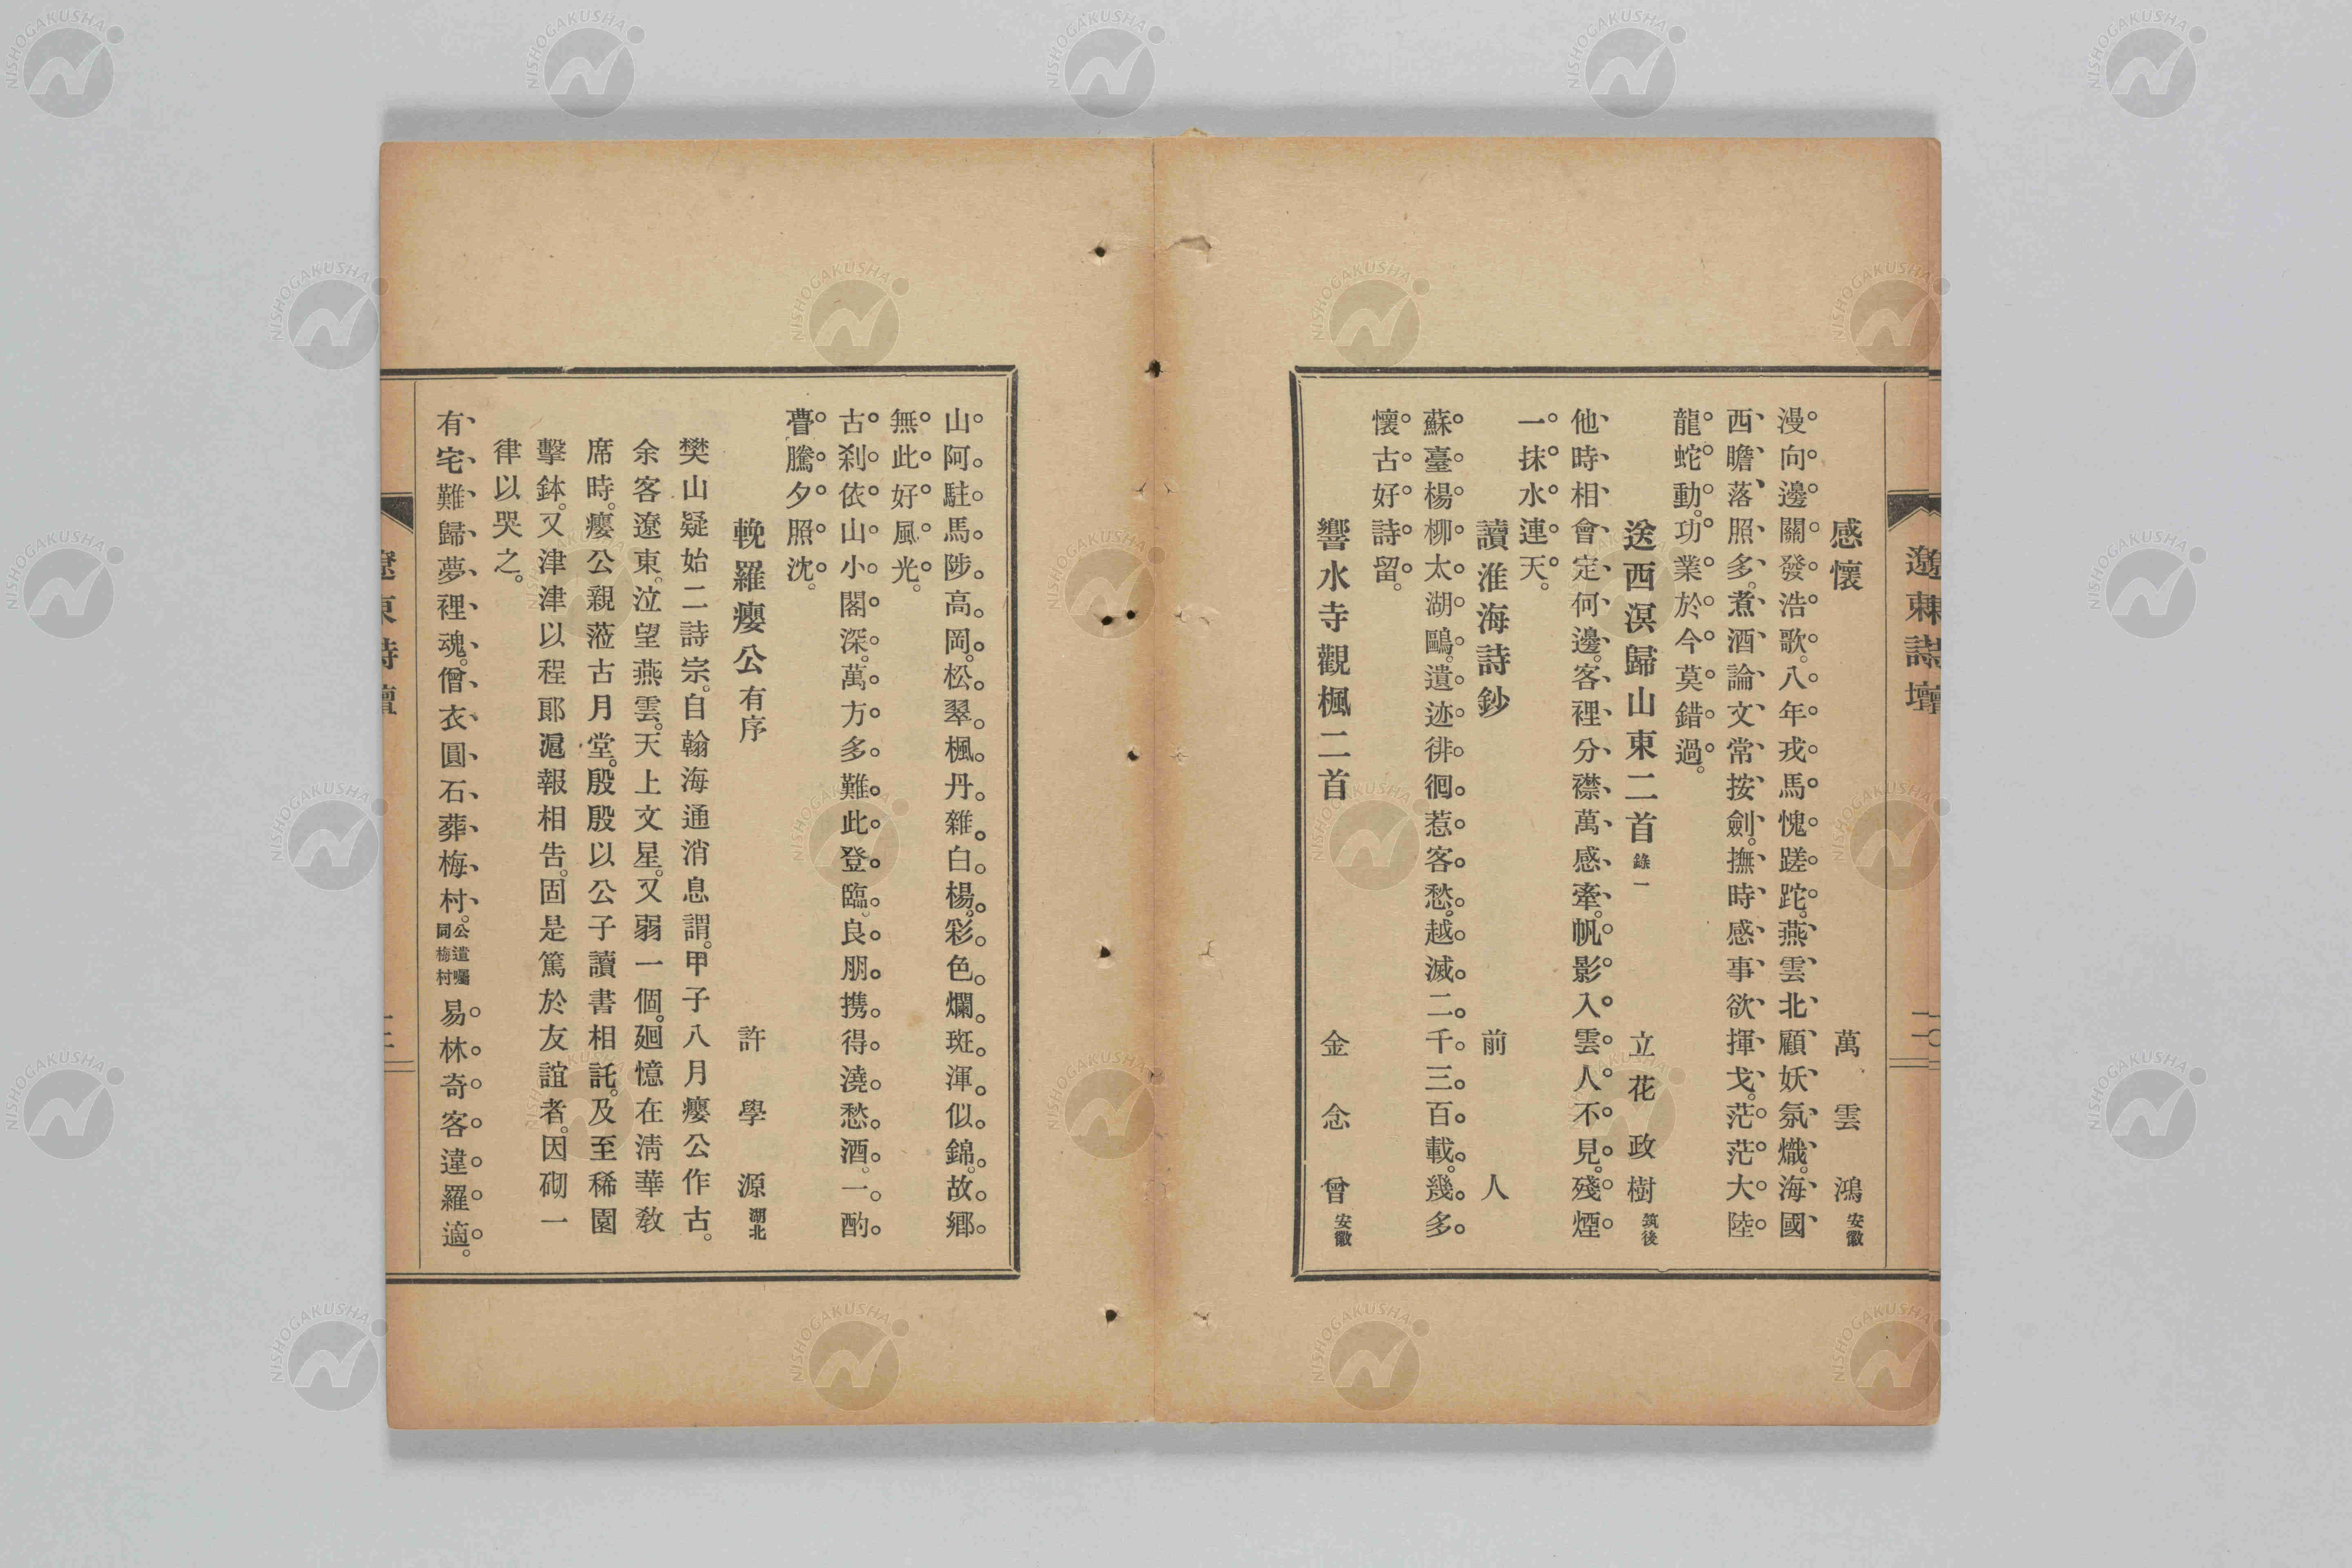 遼東詩壇
二〇
感懷 萬雲鴻 安徽
漫向邊關發浩歌。八年戎馬愧蹉跎。燕雲北顧妖氛熾。海國
西瞻落照多。煮酒論文常按劍。撫時感事欲揮戈。茫茫大陸
龍蛇動。功業於今莫錯過。
送西溟歸山東二首 錄一 立花政樹 筑後
他時相會定何邊。客裡分襟萬感牽。帆影入雲人不見。殘煙
一抹水連天。
讀淮海詩鈔 前人
蘇臺楊柳太湖鷗。遺迹徘徊惹客愁。越滅二千三百載。幾多
懷古好詩留。
響水寺觀楓二首 金念曾 安徽
山阿駐馬陟高岡。松翠楓丹雜白楊。彩色爛斑渾似錦。故鄉
無此好風光。
古剎依山小閣深。萬方多難此登臨。良朋携得澆愁酒。一酌
瞢騰夕照沈。
輓羅癭公 有序 許學源 湖北
樊山疑始二詩宗。自翰海通消息謂。甲子八月癭公作古。
余客遼東。泣望燕雲。天上文星。又弱一個。廻憶在淸華敎
席時。癭公親蒞古月堂。殷殷以公子讀書相託。及至稀園
擊鉢。又津津以程郞滬報相告。固是篤於友誼者。因砌一
律以哭之。
有宅難歸夢裡魂。僧衣圓石葬梅村。公遺囑同梅村 易林奇客違羅適。
遼東詩壇